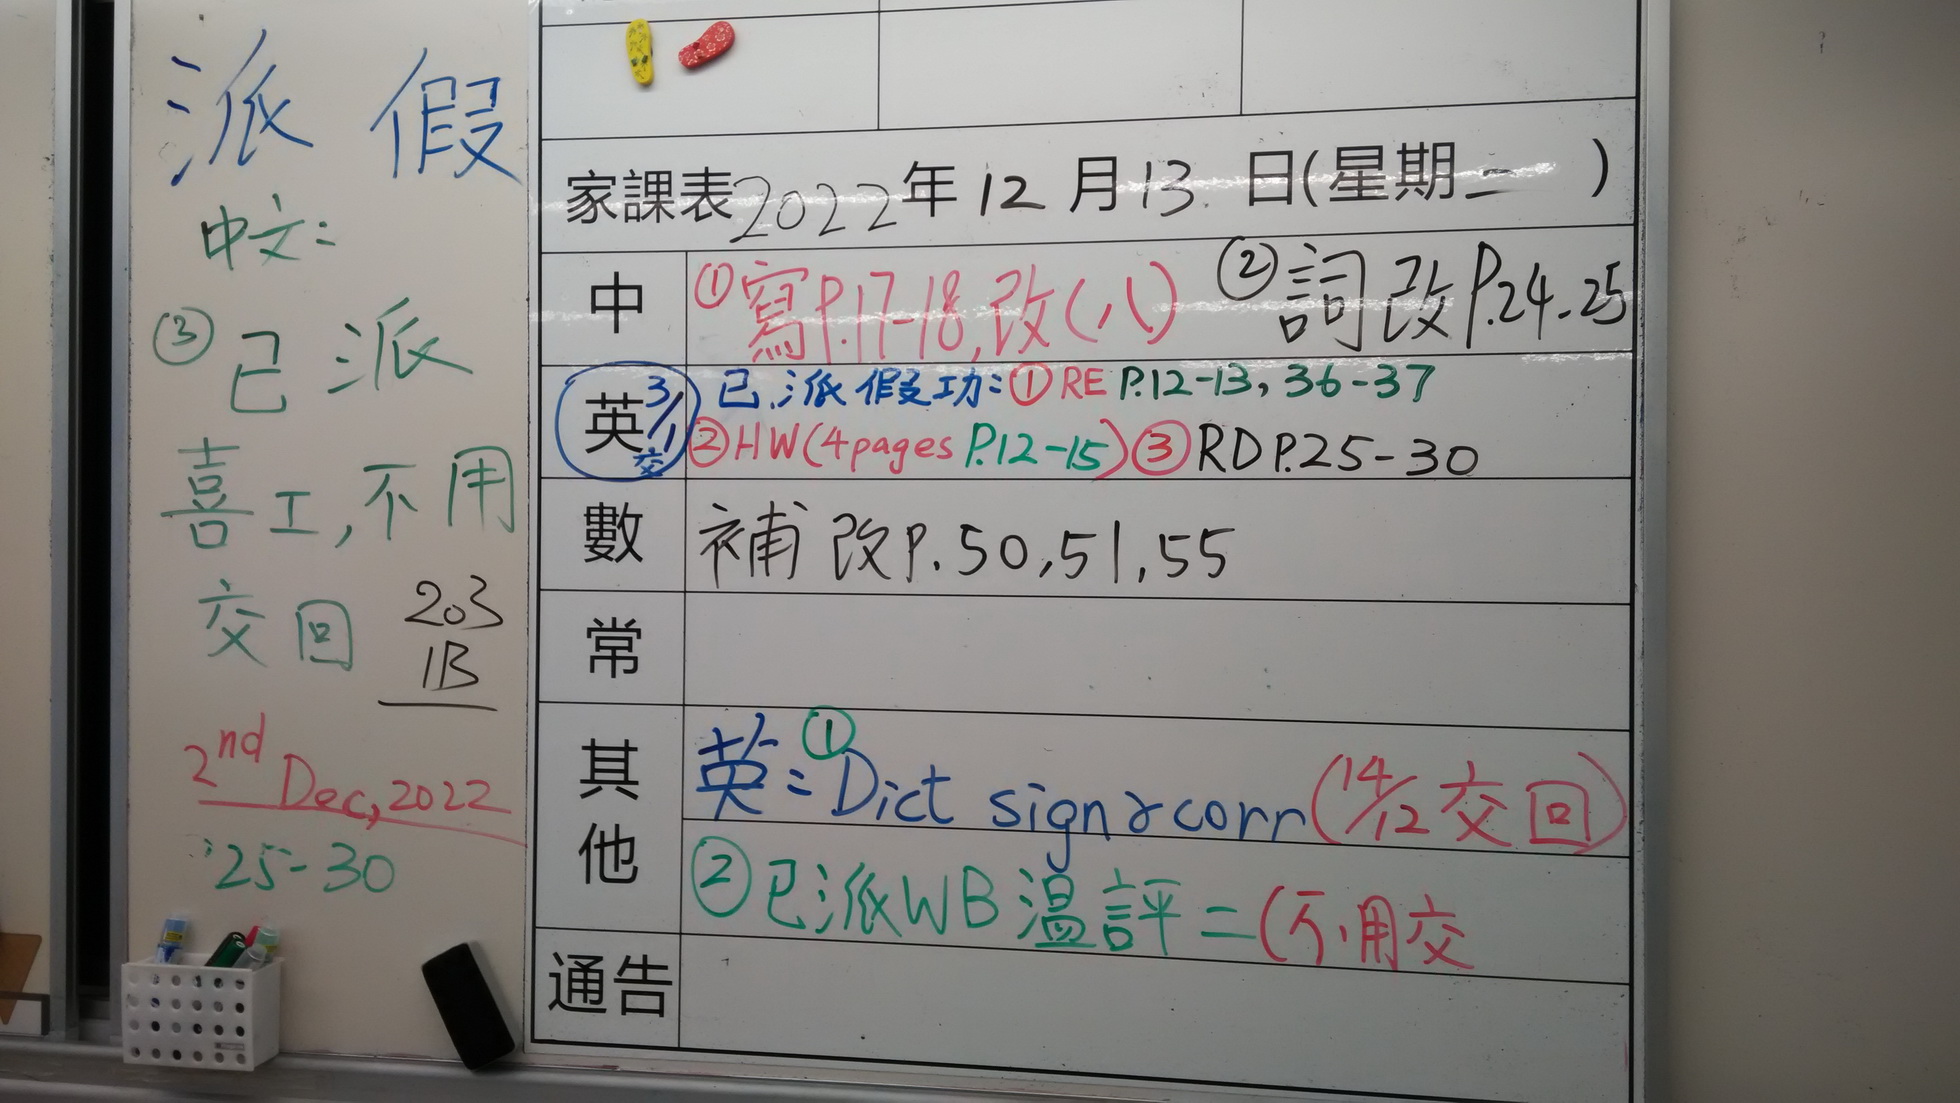 派 假
中文:
③已派
喜工,不用
交回
203
1B
2nd Dec,2022
25-30
家課表2022年12月13日(星期二 )
中 ①寫P.17-18,改(八) ②詞改P.24-25
英 3/1交 已派假功:①RE P.12-13, 36-37
②HW(4pages P.12-15)③RD P.25-30
數 補改P.50,51,55
常
其他 英:①Dict sign & corr(14/12交回)
②已派WB溫評二(不用交
通告